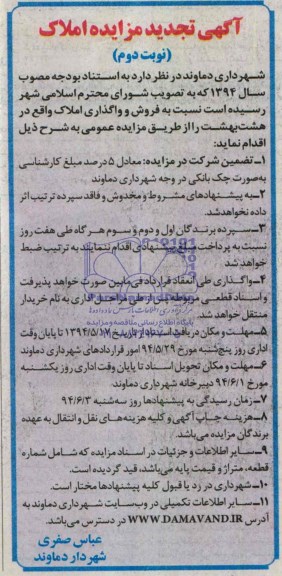 آگهی تجدید مزایده املاک
(نوبت دوم)
شهرداری دماوند در نظر دارد به استناد بودجه مصوب
سال ۱۳۹۴ که به تصویب شورای محترم اسلامی شهر
رسیده است نسبت به فروش و واگذاری املاک واقع در
هشت‌بهشت را از طریق مزایده عمومی به شرح ذیل
اقدام نماید:
۱ـ تضمین شرکت در مزایده: معادل ۵ درصد مبلغ کارشناسی
به‌صورت چک بانکی در وجه شهرداری دماوند
۲ـ به پیشنهادهای مشروط و مخدوش و فاقد سپرده ترتیب اثر
داده نخواهدشد.
۳ـ سپرده برندگان اول و دوم و سوم هرگاه طی هفت روز
نسبت به پرداخت مبلغ پیشنهادی اقدام ننمایند به ترتیب ضبط
خواهد شد
۴ـ واگذاری طی انعقاد قرارداد فی‌مابین صورت خواهد پذیرفت
و اسناد قطعی مربوطه پس از طی مراحل اداری به نام خریدار
منتقل خواهد شد.
۵ـ مهلت و مکان دریافت اسناد از تاریخ ۱۳۹۴/۵/۱۷ تا پایان وقت
اداری روز پنج‌شنبه مورخ ۹۴/۵/۲۹ امور قراردادهای شهرداری دماوند
۶ـ مهلت و مکان تحویل اسناد تا پایان وقت اداری روز یکشنبه
مورخ ۹۴/۶/۱ دبیرخانه شهرداری دماوند
۷ـ زمان رسیدگی به پیشنهادها روز سه‌شنبه ۹۴/۶/۳
۸ـ هزینه چاپ آگهی و کلیه هزینه‌های نقل و انتقال به عهده
برندگان مزایده می‌باشد.
۹ـ سایر اطلاعات و جزئیات در اسناد مزایده که شامل شماره
قطعه، متراژ و قیمت پایه می‌باشد، قید گردیده است.
۱۰ـ شهرداری در رد یا قبول کلیه پیشنهادها مختار است.
۱۱ـ سایر اطلاعات تکمیلی در وب‌سایت شهرداری دماوند به
آدرس WWW.DAMAVAND.IR در دسترس می‌باشد.
عباس صفری
شهردار دماوند